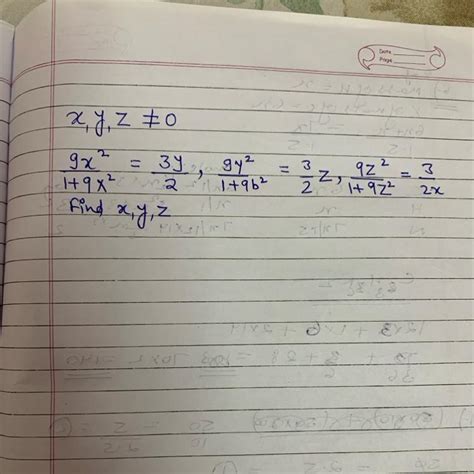 Date
Page
x, y, z ≠ 0
9x²/1+9x² = 3y/2 , 9y²/1+9b² = 3/2 z, 9z²/1+9z² = 3/2x
Find x, y, z